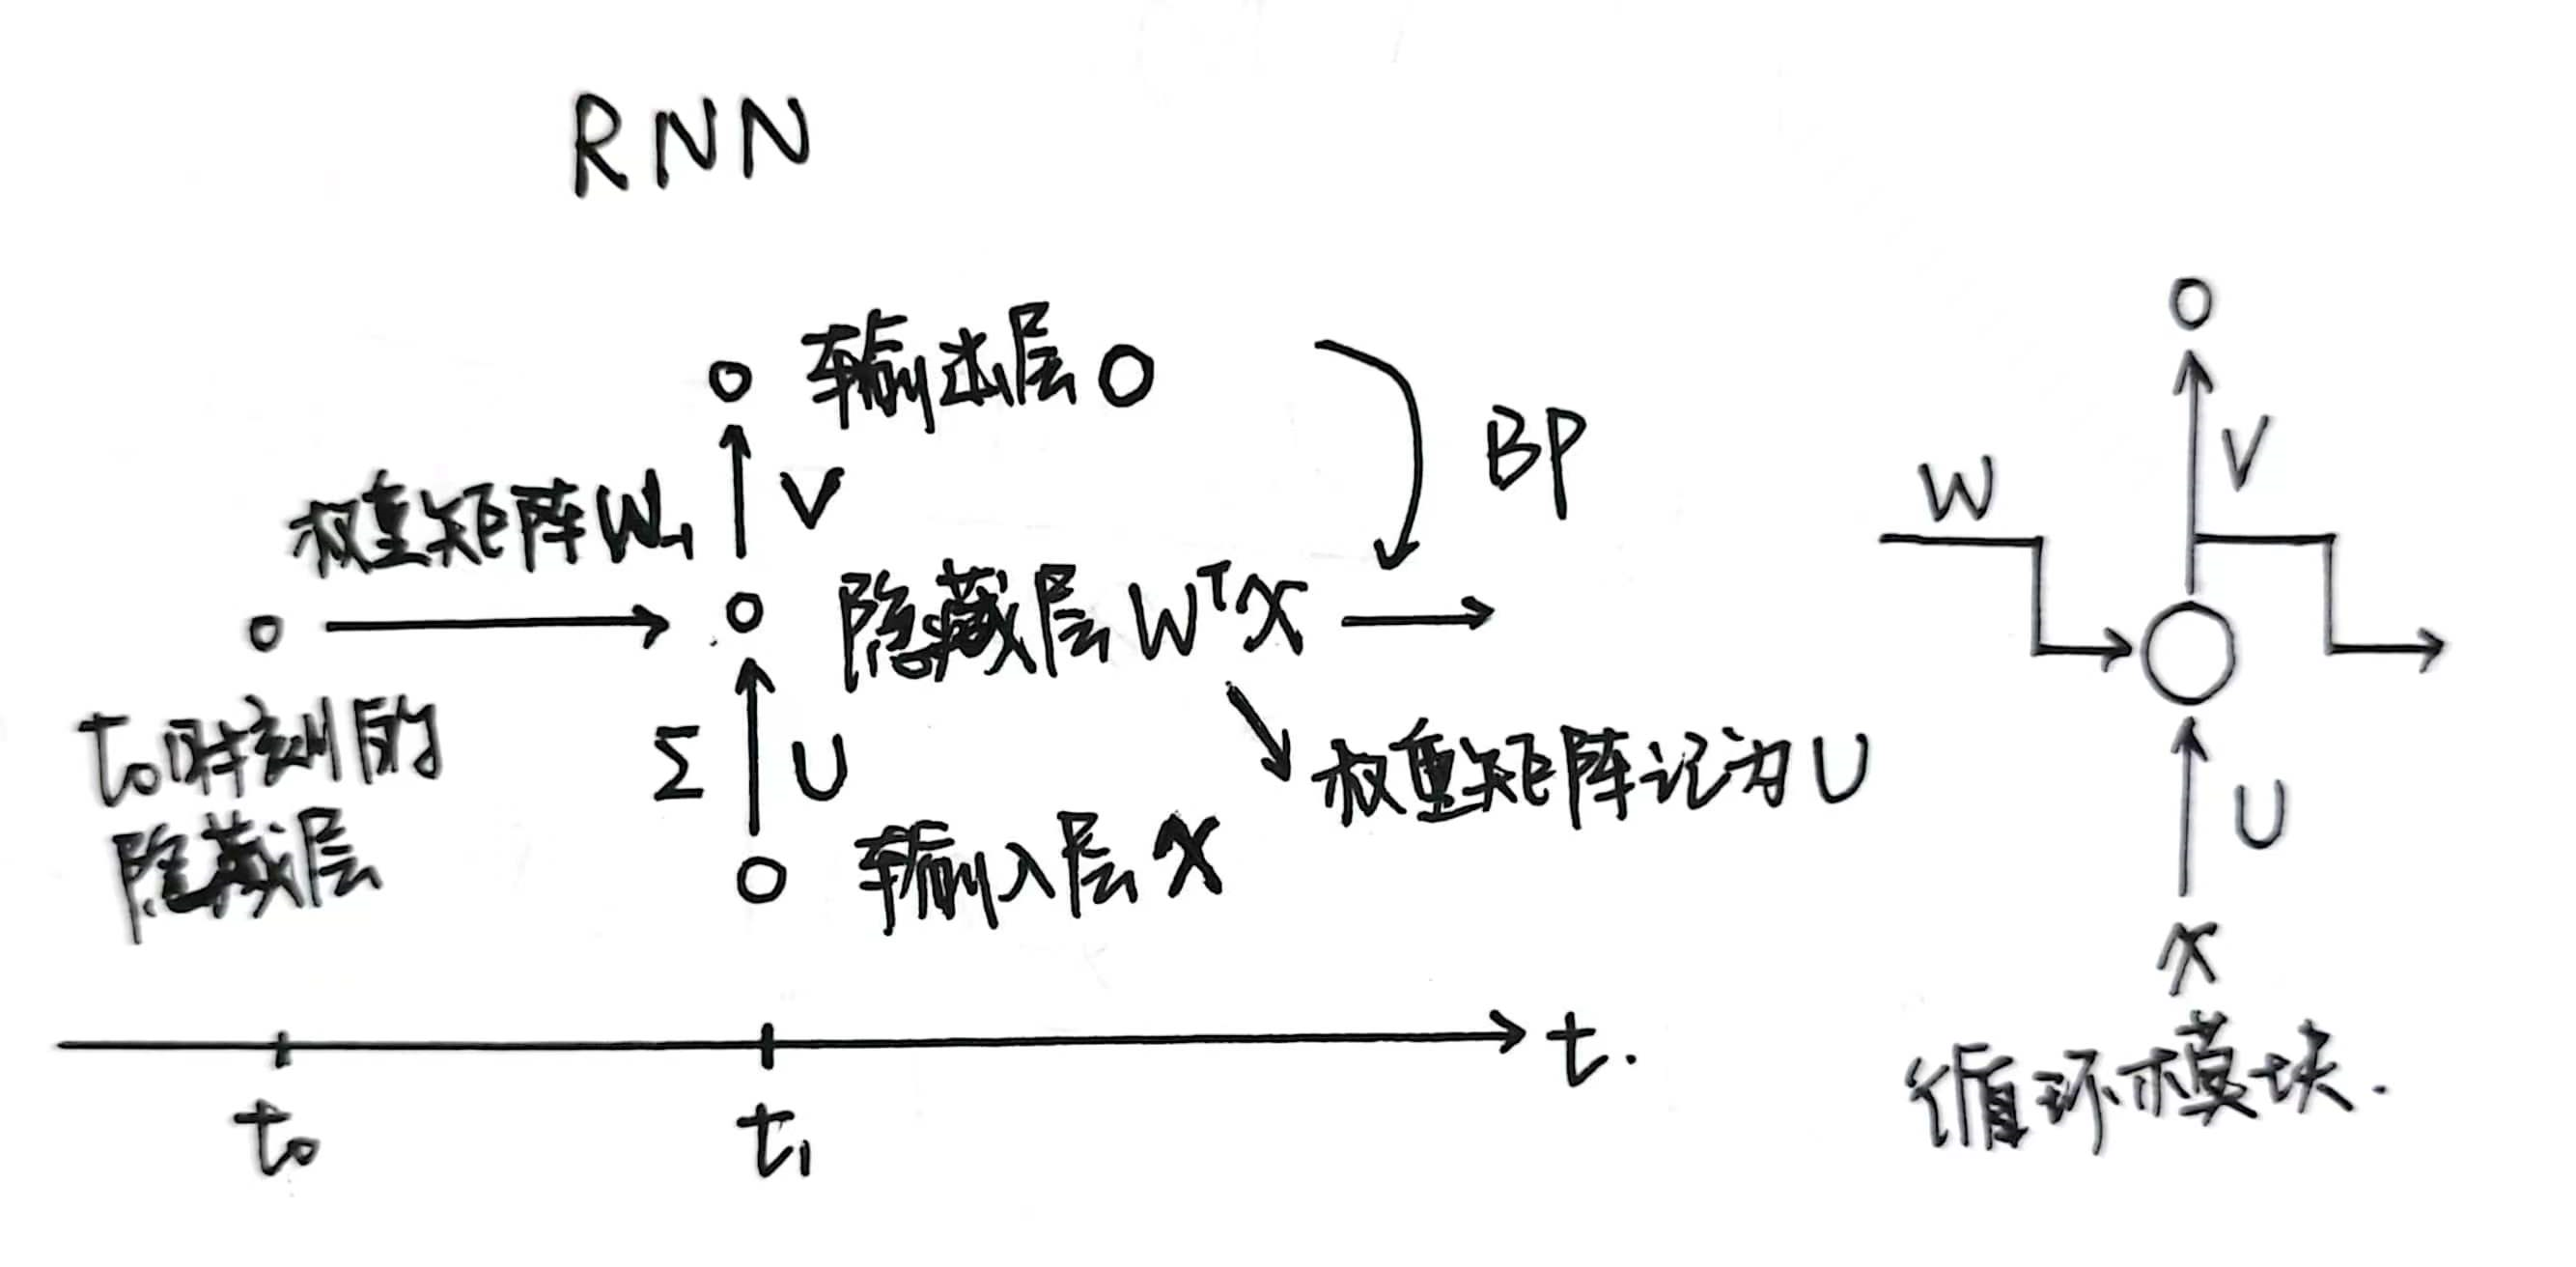 RNN
输出层 O
BP
V
权重矩阵 W₋₁
隐藏层 WᵀX
t₀时刻的
隐藏层
Σ
U
权重矩阵记为 U
输入层 X
t₀
t₁
t.
O
V
W
U
X
循环模块.